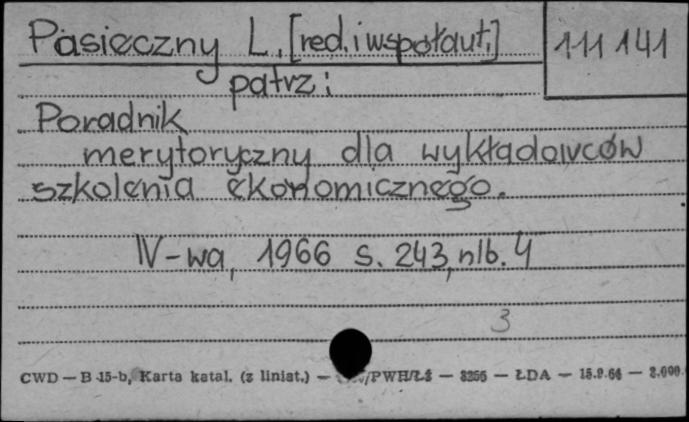 Pasieczny L. [red. i współaut.]
111 141
patrz:
Poradnik
merytoryczny dla wykładowców
szkolenia ekonomicznego.
W-wa, 1966 s. 243, nlb. 4
3
CWD — B 15-b, Karta katal. (z liniat.) — /PWH/Łź — 3256 — ŁDA — 15.9.64 — 2.000.